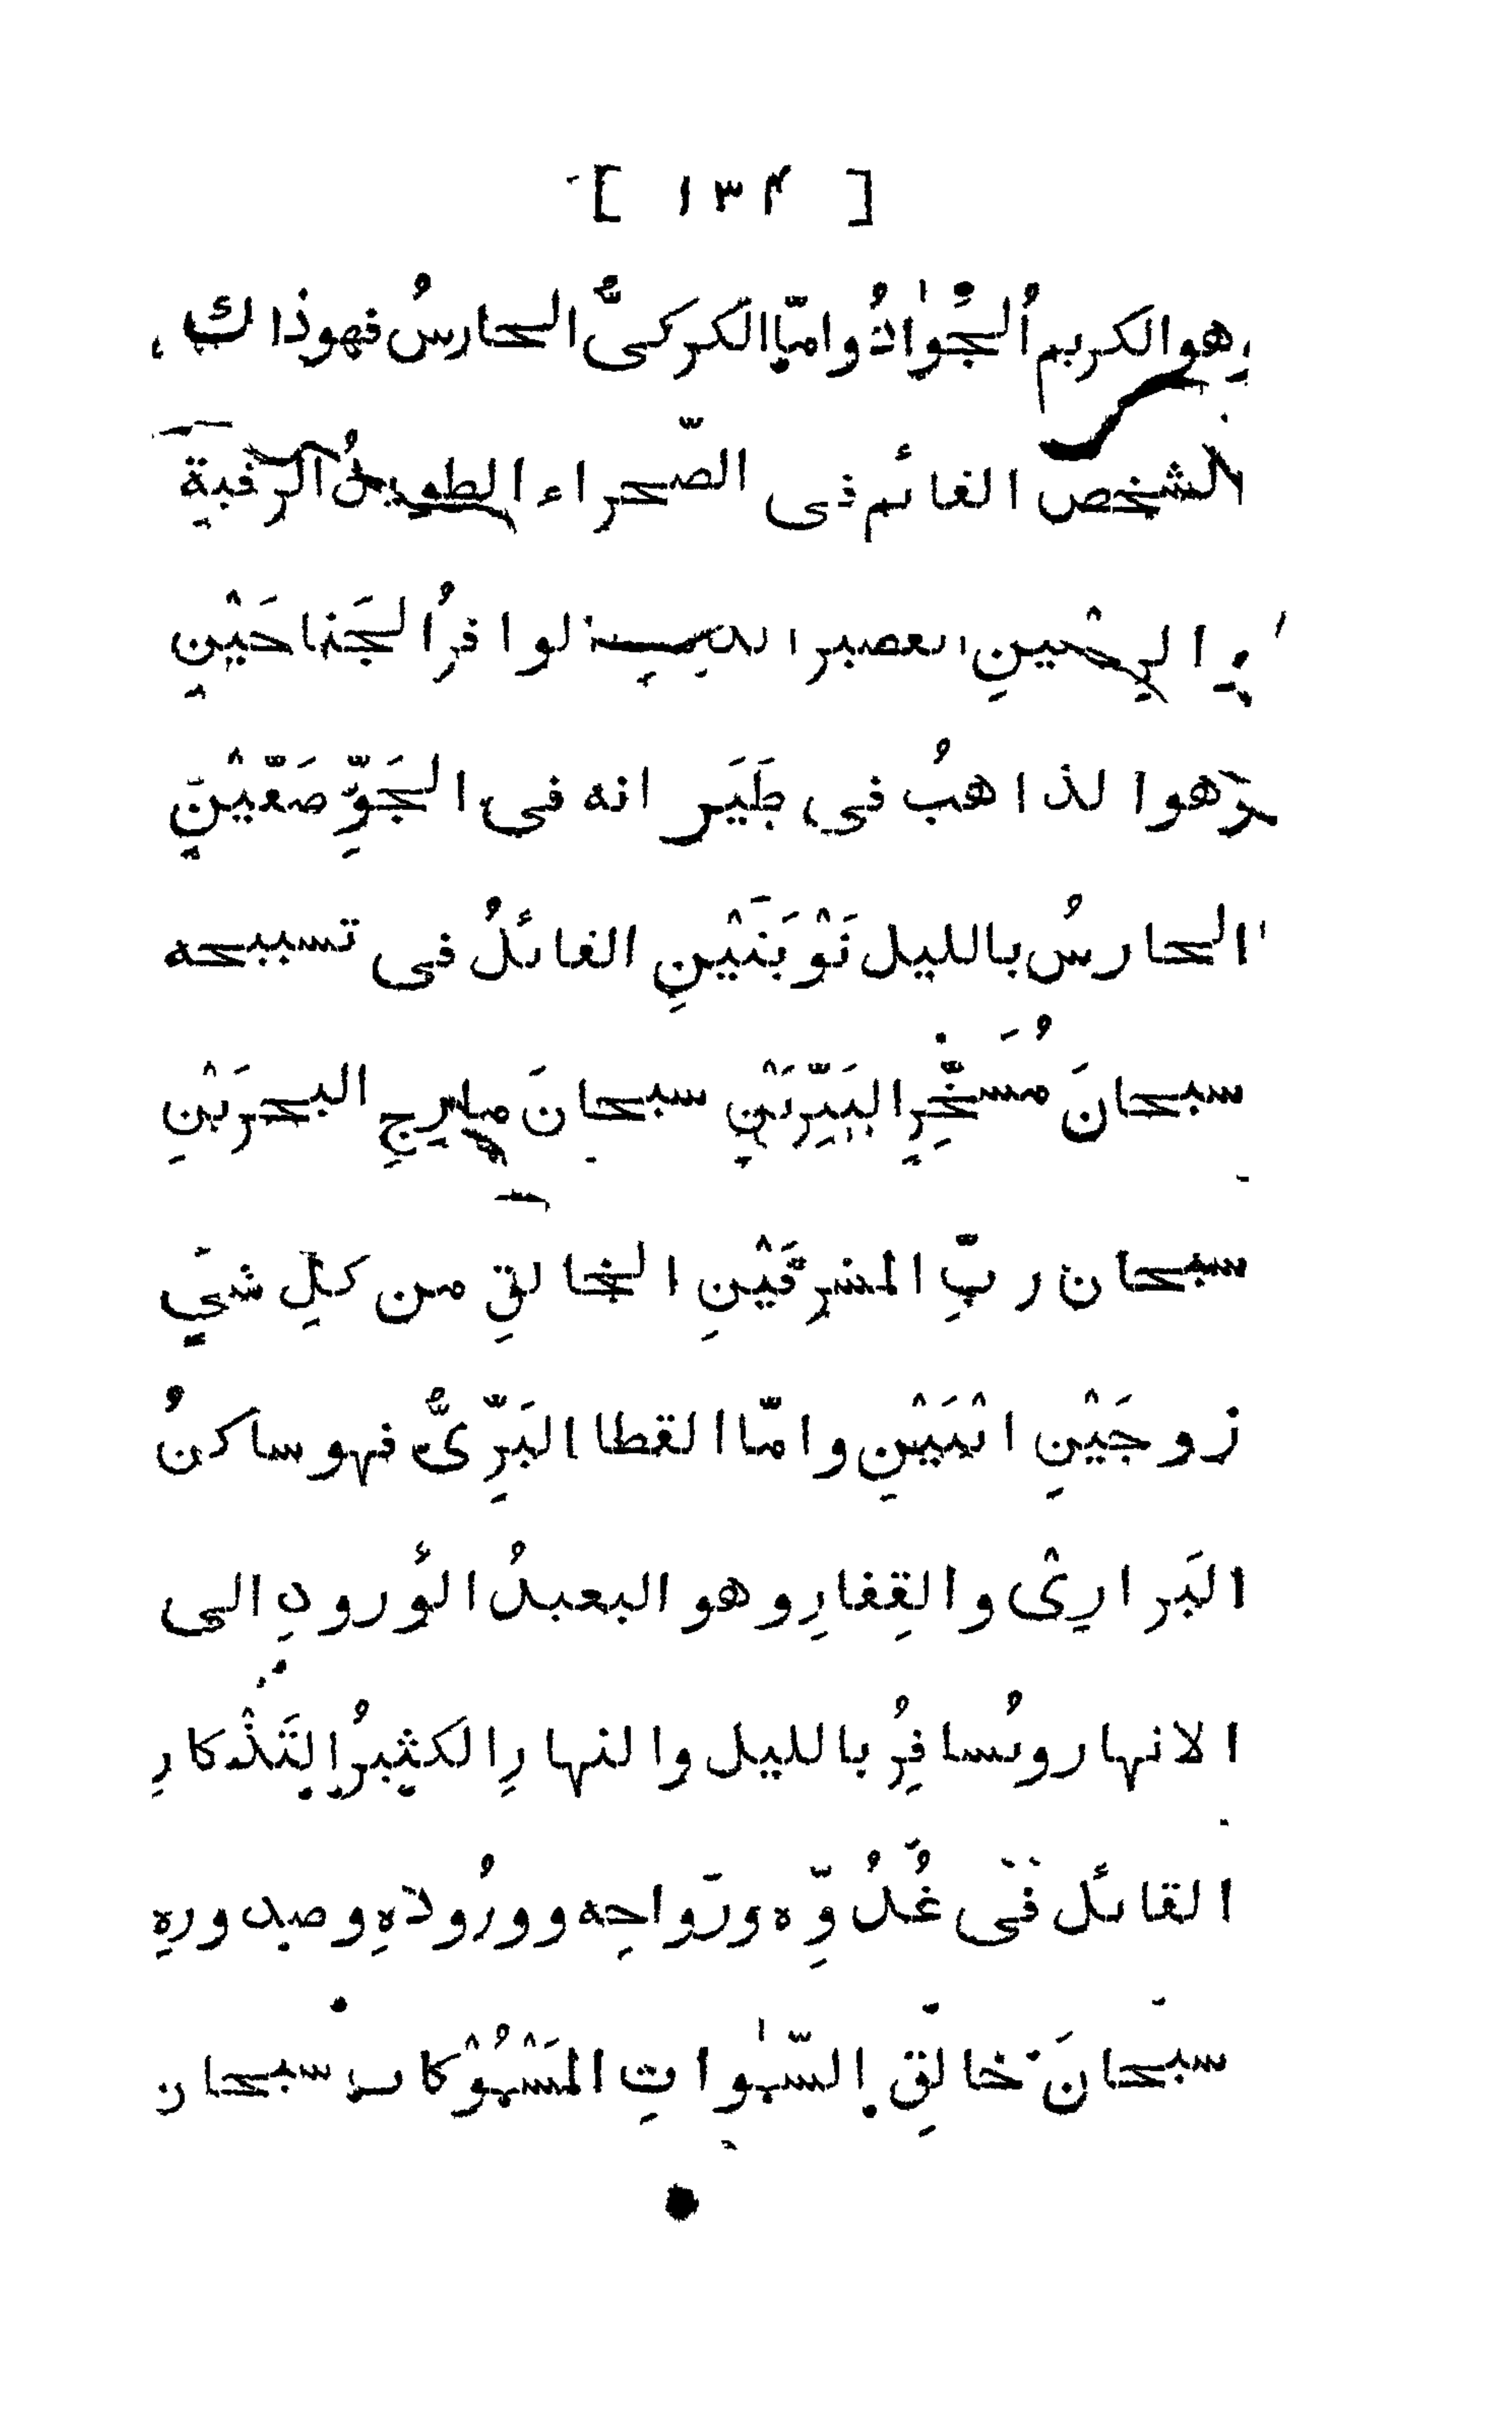 [ ١٣٤ ]
وهو الكريم الجُوٰادُ وامّا الكركىُّ الحارسُ فهو ذاك
الشخص القائم فى الصّحراء الطويلُ الرقبة
الرِجْلينِ القصير الذنب الوافرُ الجَناحَيْنِ
وهو الذاهبُ فى طَيَرانه فى الجَوِّ صَفّيْنِ
الحارسُ بالليل نَوْبَتَيْنِ القائلُ فى تسبيحه
سبحانَ مُسَخِّرِ النَيِّرَيْنِ سبحانَ مارجِ البحرَيْنِ
سبحان ربِّ المشرِقَيْنِ الخالقِ من كلِ شيٍ
زوجَيْنِ اثنَيْنِ وامّا القطا البَرِّىُّ فهو ساكنُ
البَرارىْ والقِفارِ وهو البعيدُ الوُرودِ الى
الانهار ويُسافِرُ بالليل والنهارِ الكثيرُ التَذْكارِ
القائل فى غُدُوِّه ورَواحِه وورُودهِ وصدورهِ
سبحانَ خالقِ السّمٰواتِ المَسْمُوْكات سبحان